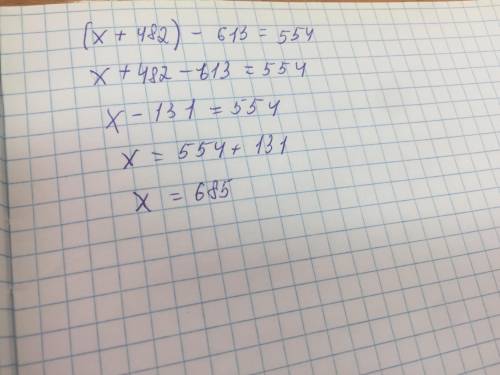 (x + 482) - 613 = 554
x + 482 - 613 = 554
x - 131 = 554
x = 554 + 131
x = 685